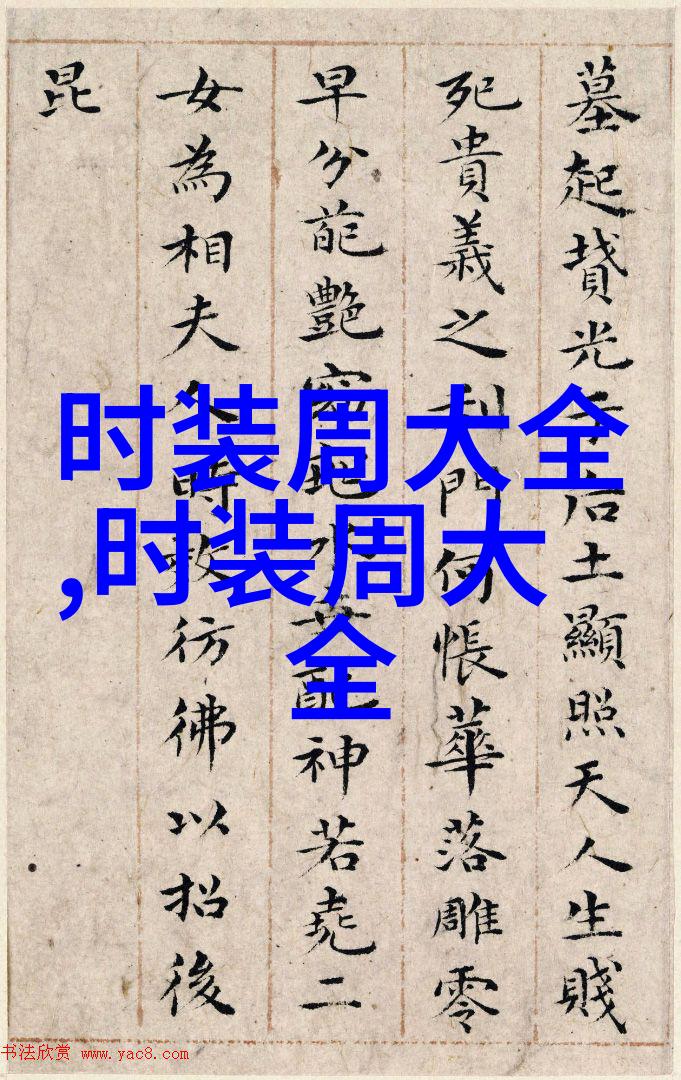 墓起賛光于后土顯照天人生賤
死貴義之利門何悵華落雕零
早分葩艷窈窕水
神若堯二
女為相夫人時救彷彿以招後
昆
时装周大全
,时装周大
全
书法欣赏 www.yac8.com